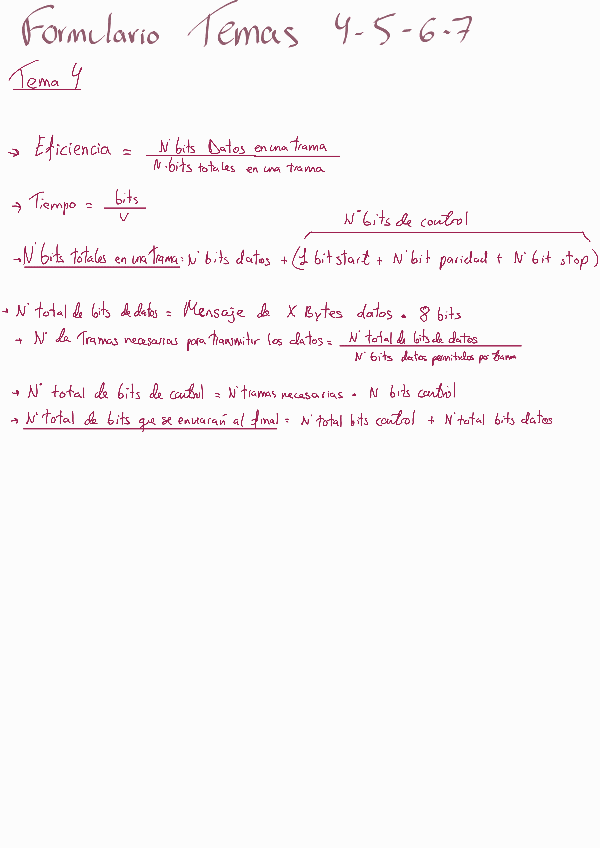 Formulario Temas 4-5-6-7
Tema 4
→ Eficiencia = Nº bits Datos en una trama / Nº bits totales en una trama
→ Tiempo = bits / V
Nº bits de control
→ Nº bits totales en una Trama: Nº bits datos + (1 bit start + Nº bit paridad + Nº bit stop)
→ Nº total de bits de datos = Mensaje de X Bytes datos • 8 bits
→ Nº de Tramas necesarias para transmitir los datos = Nº total de bits de datos / Nº bits datos permitidos por trama
→ Nº total de bits de control = Nº tramas necesarias • Nº bits control
→ Nº total de bits que se enviarán al final = Nº total bits control + Nº total bits datos